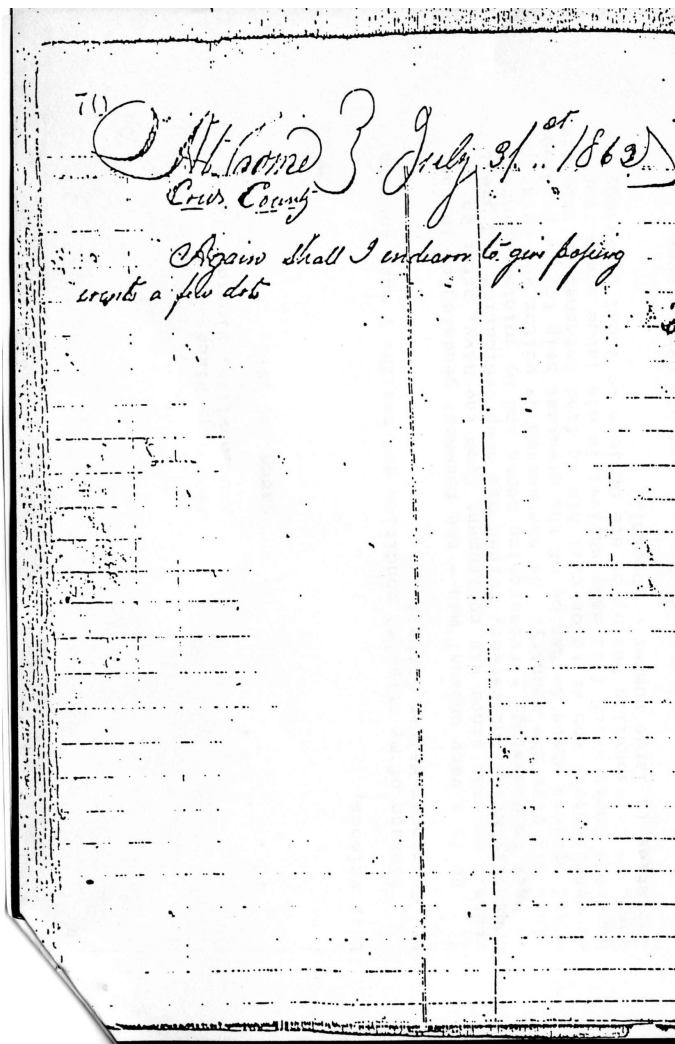 70
At home } July 31st 1863
Crews County
Again shall I endeavor to give passing
events a few dots